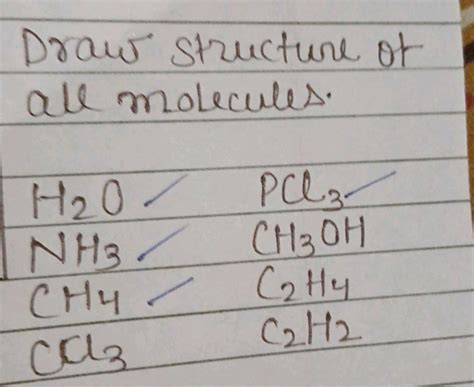 Draw structure of
all molecules.
H2O PCl3
NH3 CH3OH
CH4 C2H4
CCl3 C2H2